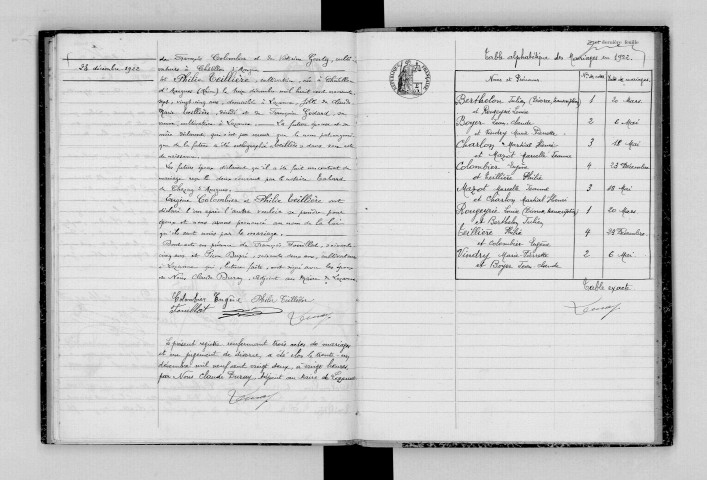 23 décembre 1922
de François Colombier et de Victoire
à Châtillon d'Azergues
et Philie Teillière, cultivatrice, née à Châtillon
d'Azergues (Rhône) le treize décembre mil huit cent
vingt cinq ans, domiciliée à Lozanne, fille de Claude
Marie Teillière, décédé et de Françoise Godard
cultivatrice à Lozanne. La future épouse et sa
mère déclarent que c'est par erreur que le nom patronymique
de la future a été orthographié
de naissance.
Les futurs époux déclarent qu'il a été fait un contrat de
mariage reçu le douze courant par le notaire
de Chazay d'Azergues.
Eugène Colombier et Philie Teillière ont
déclaré l'un après l'autre vouloir se prendre pour
époux et nous avons prononcé au nom de la loi
qu'ils sont unis par le mariage.
Dont acte en présence de François Fouillat, soixante
cinq ans et Pierre
à Lozanne qui, lecture faite, ont signé avec les époux
et Nous Claude Duray, adjoint au Maire de Lozanne
Colombier Eugène Philie Teillière
Fouillat
Le présent registre renfermant trois actes de mariages
et un jugement de divorce a été clos le trente un
décembre mil neuf cent vingt deux, à vingt heures
par Nous Claude Duray, adjoint au Maire de Lozanne
dernière feuille
Table alphabétique des Mariages en 1922.
Noms et Prénoms Nos des actes Date des mariages
Bertholon Julien (Divorce, transcription) 1 20 Mars
et Rougeyrie Louise
Boyer Jean Claude 2 6 Mai
et Vindry Marie Pierrette
Charlon Martial Henri 3 18 Mai
et Mazot Marcelle Jeanne
Colombier Eugène 4 23 Décembre
et Teillière Philie
Mazot Marcelle Jeanne 3 18 Mai
et Charlon Martial Henri
Rougeyrie Louise (Divorce, transcription) 1 20 Mars
et Bertholon Julien
Teillière Philie 4 23 Décembre
et Colombier Eugène
Vindry Marie Pierrette 2 6 Mai
et Boyer Jean Claude
Table exacte